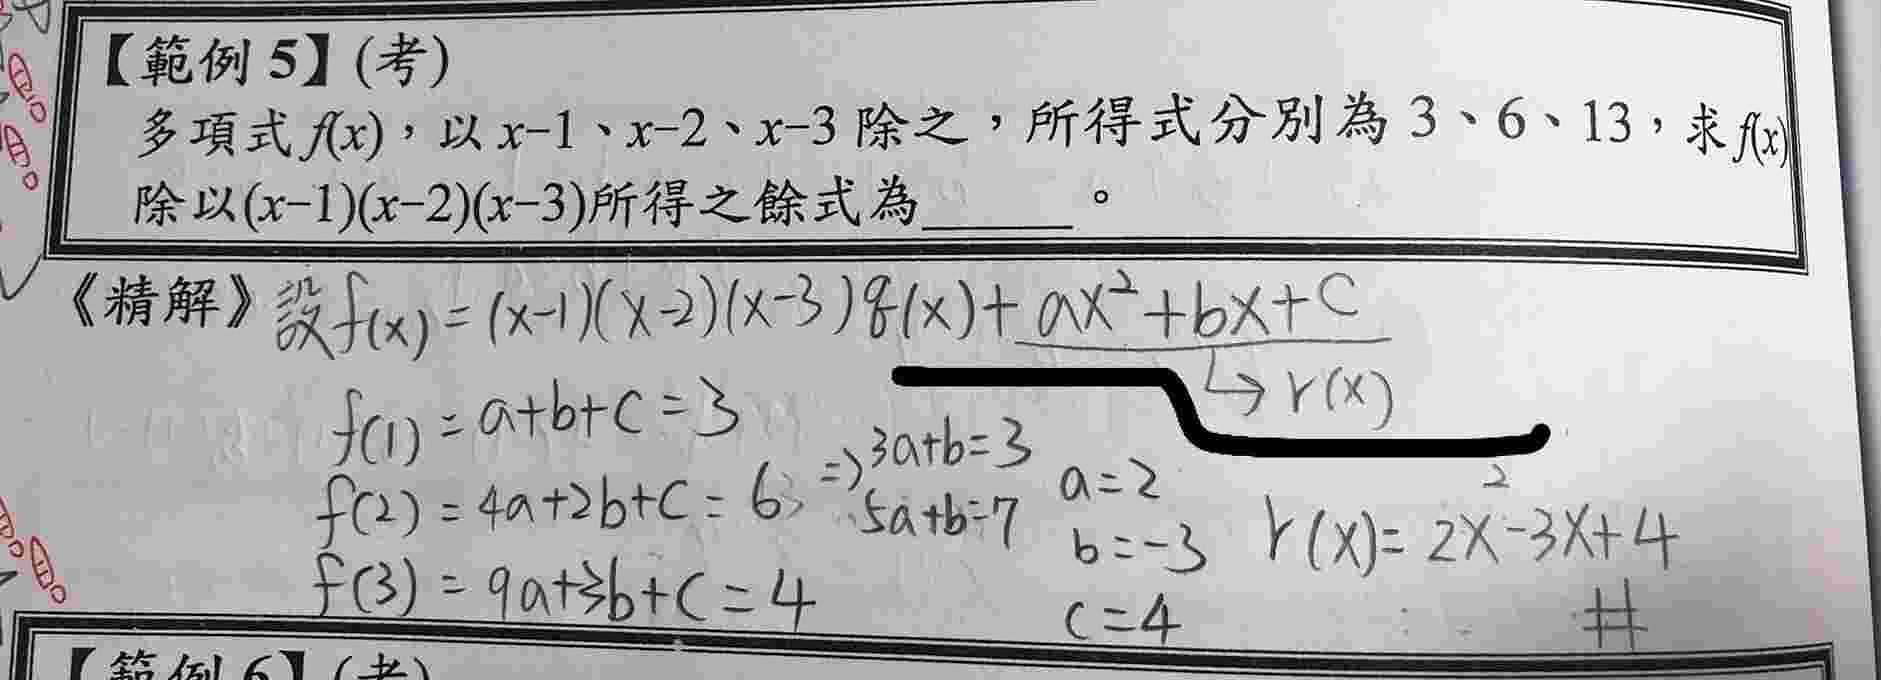 【範例 5】(考)
多項式 f(x)，以 x−1、x−2、x−3 除之，所得式分別為 3、6、13，求 f(x)
除以(x−1)(x−2)(x−3)所得之餘式為______。
《精解》設f(x) = (x-1)(x-2)(x-3)q(x)+ax²+bx+c
↳ r(x)
f(1) = a+b+c = 3
f(2) = 4a+2b+c = 6
f(3) = 9a+3b+c = 4
⇒ 3a+b=3
5a+b=7
a=2
b=-3
c=4
r(x)= 2x²-3x+4
#
【範例 6】(考)